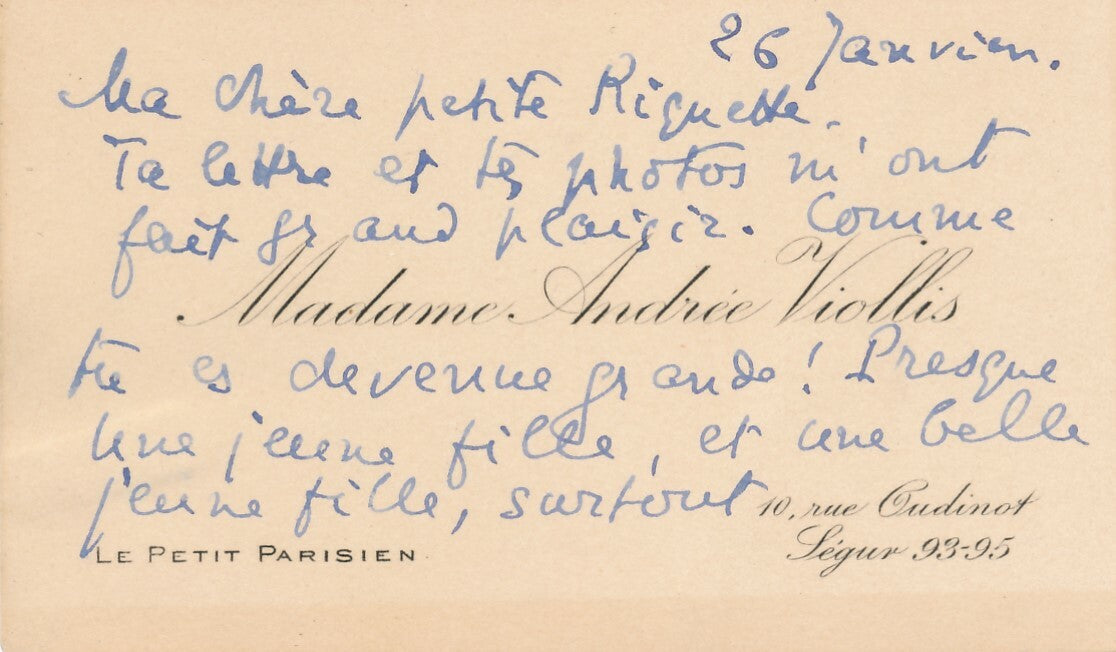 26 Janvier.
Ma chère petite Riquette.
Ta lettre et tes photos m'ont
fait grand plaisir. Comme
Madame Andrée Viollis
tu es devenue grande! Presque
une jeune fille, et une belle
jeune fille, surtout
10, rue Oudinot
LE PETIT PARISIEN
Ségur 93-95